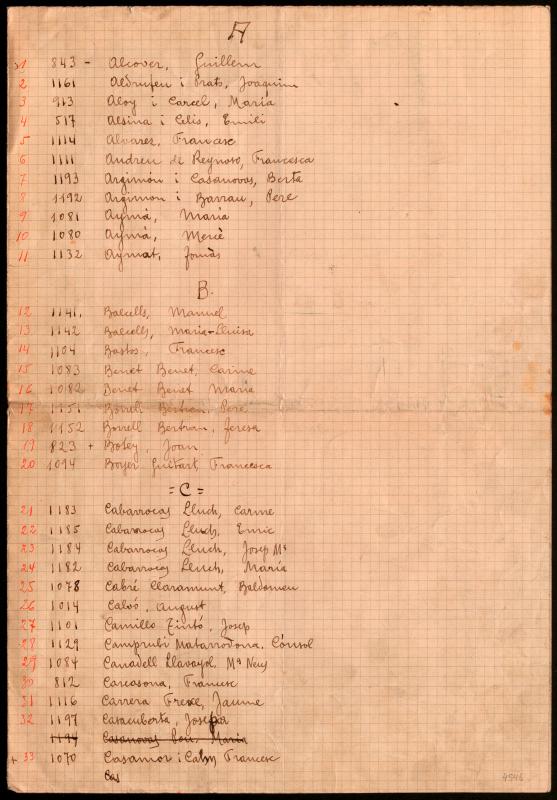 A
1 843 - Alcover, Guillem
2 1161 Aldrufeu i Prats, Joaquim
3 913 Aloy i Carcel, María
4 517 Alsina i Celis, Emili
5 1114 Alvarez, Francesc
6 1111 Andreu de Reynoso, Francesca
7 1193 Argimón i Casanovas, Berta
8 1192 Argimon i Barrau, Pere
9 1081 Aymà, Maria
10 1080 Aymà, Mercè
11 1132 Aymat, Tomàs
B.
12 1141, Balcells, Manuel
13 1142 Balcells, Maria-Lluisa
14 1104 Bastos, Francesc
15 1083 Benet Benet, Carme
16 1082 Benet Benet Maria
17 1151 Borrell Bertran, Pere
18 1152 Borrell Bertran, Teresa
19 823 + Botey, Joan
20 1094 Boyer Guitart, Francesca
= C =
21 1183 Cabarrocas Lluch, Carme
22 1185 Cabarrocas Lluch, Enric
23 1184 Cabarrocas Lluch, Josep Mª
24 1182 Cabarrocas Lluch, María
25 1078 Cabré Claramunt, Baldomeu
26 1014 Calvó, August
27 1101 Camillo Tintó, Josep
28 1129 Camprubi Matarrodona, Cónsol
29 1084 Canadell Llavayol, Mª Neus
30 812 Carcasona, Francesc
31 1116 Carrera Freixe, Jaume
32 1197 Casacuberta, Josepa
1199 Casanovas Maria
+ 33 1070 Casamor i Francesc
Cas
4546